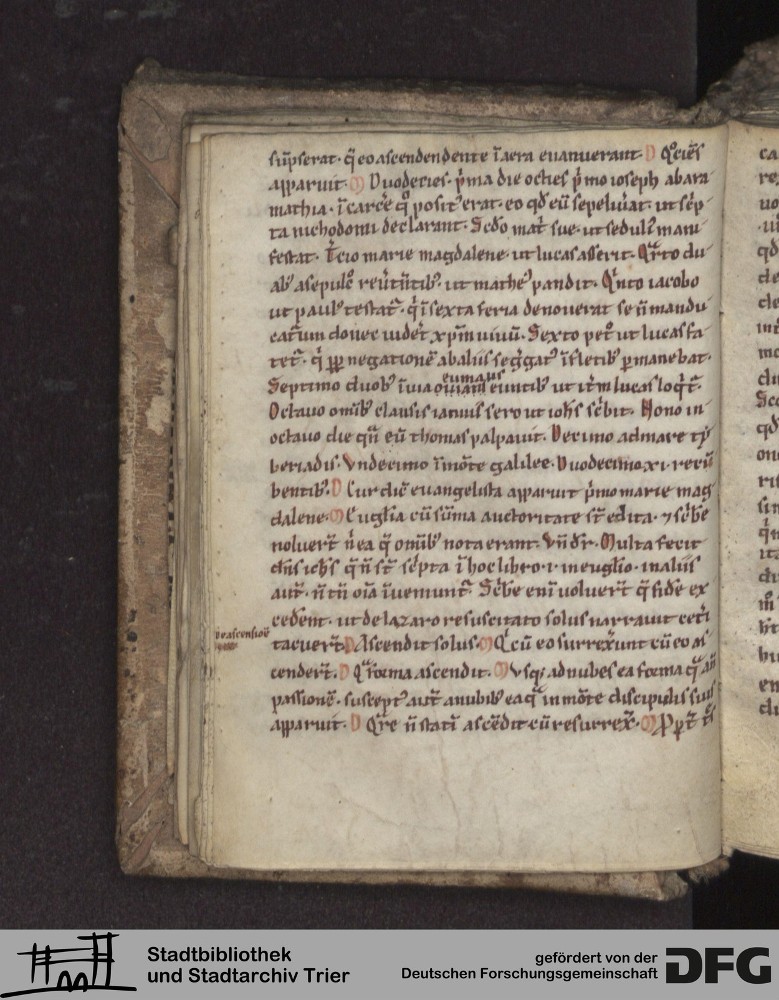 sūpserat· q̄ eo ascendendente ī aera euanuerant· D Qͦciēs
apparuit· M Duodecies· p̄ma die octies p̄mo ioseph abara
mathia· ī carcē q̊ posit᾿ erat· eo qd̄ eū sepeliuīat· ut sc̄p
ta nichodomi declarant· Scd̄o mat̄ sue· ut sedul᾿ mani
festat· T̄cio marie magdalene· ut lucas asserit· Qͣrto du
ab᾿ a sepulc̄ reūtītib᾿· ut mathe᾿ pandit· Qͥnto iacobo
ut paul᾿ testat᾿· q̄ ī sexta feria deuouerat se ñ mandu
caturum donec uider̄ xp̄m uiuū· Sexto pet᾿ ut lucas fa
tet᾿· q̄ negationē ab aliis seg̃gat᾿ ī fletib᾿ pmanebat·
eumaus
Septimo duob᾿ ī uia euntib᾿ ut it̄m lucas loqͥt᾿·
Octauo omīb᾿ clausis ianuis sero ut ioh̄s sc̄bit· Nono in
octauo die qn̄ eū thomas palpauit· Decimo ad mare ty
beriadis· Vndecimo ī mōte galilee· Duodecimo xi· recū
bentib᾿· D Cur dic̄ euangelista apparuit p̄mo marie mag
dalene· M Euglīa cū sūma auctoritate st̄ edita· ⁊ sc̄be
noluer̄t ñ ea q̄ omīb᾿ nota erant· Vn̄ dr̄· Multa fecit
dn̄s ih̄s q̄ ñ st̄ sc̄pta ī hoc libro· i· in euglīo· in aliis
aut̄· ñ tn̄ oīa īueniunt᾿· Sc̄be eni uoluer̄t q̄ fidē ex
cedent· ut de lazaro resuscitato solus narrauit cet̄i
de ascensiōe
tacuer̄t· D Ascendit solus· M Qͥ cū eo surrexerunt cū eo as
cender̄t· D Qͣ forma ascendit· M Vsq; ad nubes ea forma qͣ an̄
passionē· suscept᾿ aut̄ a nubib᾿ ea qͣ in mōte discipulis suis
apparuit· D Qͣre ñ statī ascēdit cū resurrex̄· M
ca
Stadtbibliothek
und Stadtarchiv Trier
gefördert von der
Deutschen Forschungsgemeinschaft
DFG